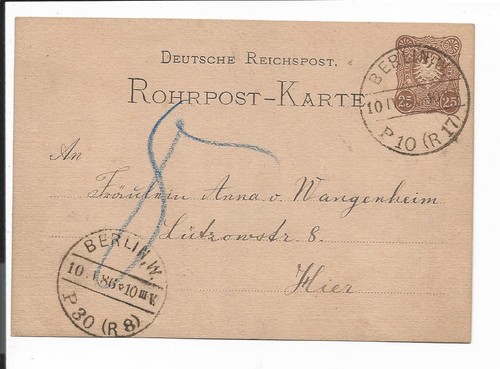 DEUTSCHE REICHSPOST.
ROHRPOST-KARTE
25 25
BERLIN, W.
P 10 (R 17)
An
Fräulein Anna v. Wangenheim
Lützowstr. 8.
Hier
BERLIN, W.
10. 86 * 10
P 30 (R 8)